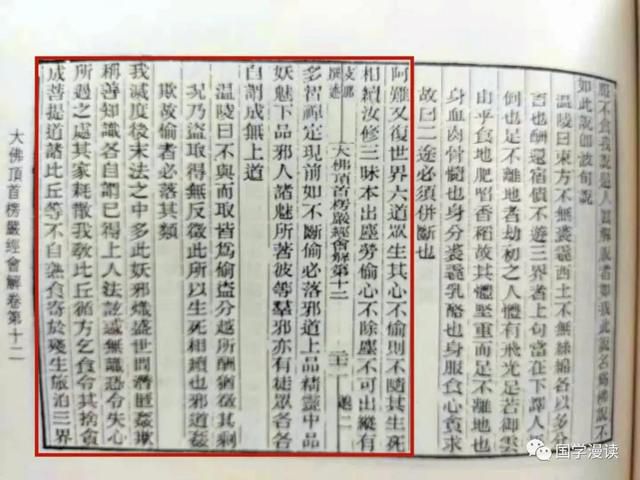 服不食我說是人真解脫者如我此說名為佛說不
如此說即波旬說
溫陵曰東方不無裘毳西土不無絲綿各以多分
言也酬還宿債不遊三界者上句當在下譯人
倒也足不離地者劫初之人體有飛光足若御雲
由乎食地肥啗香稻故其體堅重而足不離地也
身血肉骨髓也身分裘毳乳酪也身服食心貪求
故曰二途必須併斷也
阿難又復世界六道眾生其心不偷則不隨其生死
相續汝修三昧本出塵勞偷心不除塵不可出縱有
支那撰述 大佛頂首楞嚴經會解第十二 二十
多智禪定現前如不斷偷必落邪道上品精靈中品
妖魅下品邪人諸魅所著彼等羣邪亦有徒眾各各
自謂成無上道
溫陵曰不與而取皆為偷盜分越所酬猶徵其剩
況乃盜取得無反徵此所以生死相續也邪道姦
欺故偷者必落其類
我滅度後末法之中多此妖邪熾盛世間潛匿姦欺
稱善知識各自謂已得上人法詃惑無識恐令失心
所過之處其家耗散我教比丘循方乞食令其捨貪
成菩提道諸比丘等不自熟食寄於殘生旅泊三界
大佛頂首楞嚴經會解卷第十二
国学漫读